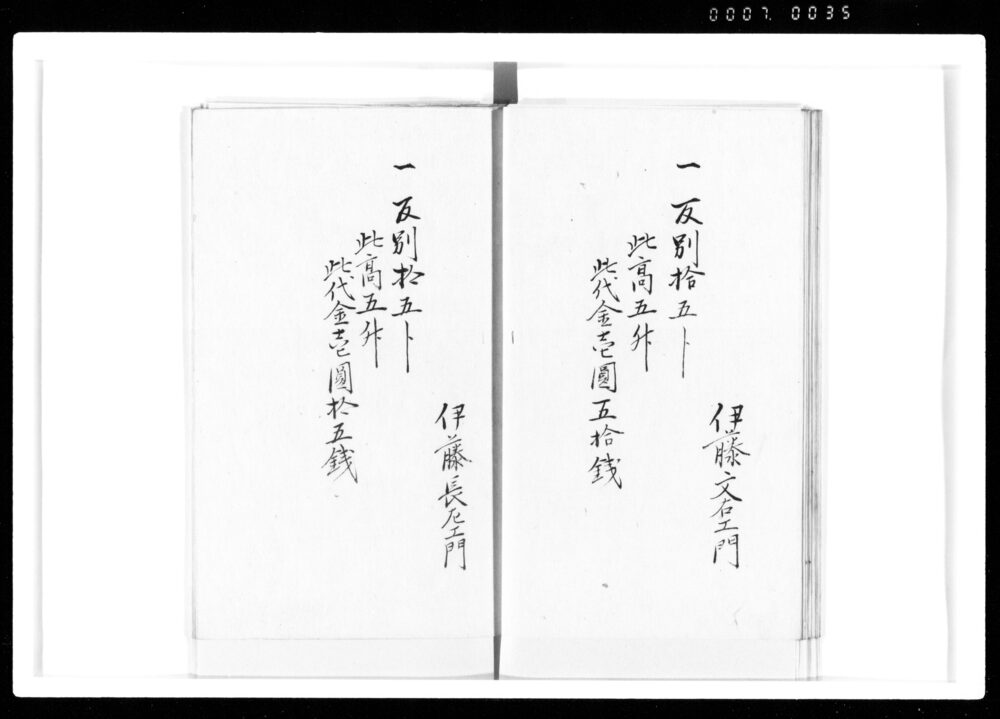 0007. 0035
伊藤文右エ門
一反別拾五卜
此高五升
此代金壱圓五拾銭
伊藤長左エ門
一反別拾五卜
此高五升
此代金壱圓拾五銭